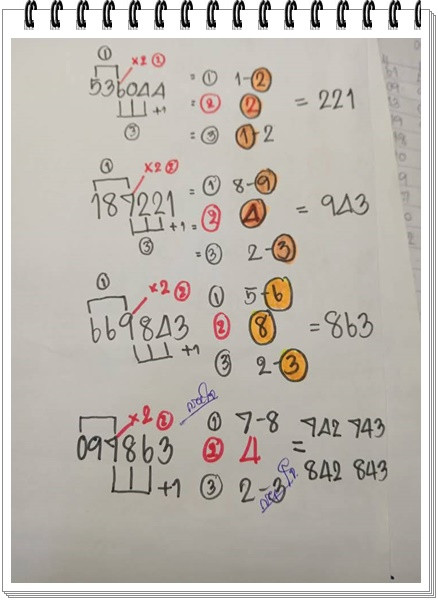 ①
×2 ②
536044 = ① 1-2
+1 = ② 2 = 221
③ = ③ 1-2
①
×2 ②
187221 = ① 8-9
+1 = ② 4 = 943
③ = ③ 2-3
①
×2 ② ① 5-6
669843 ② 8 = 863
+1 ③ 2-3
×2 ② ① 7-8 742 743
097863 ② 4 =
+1 ③ 2-3 842 843